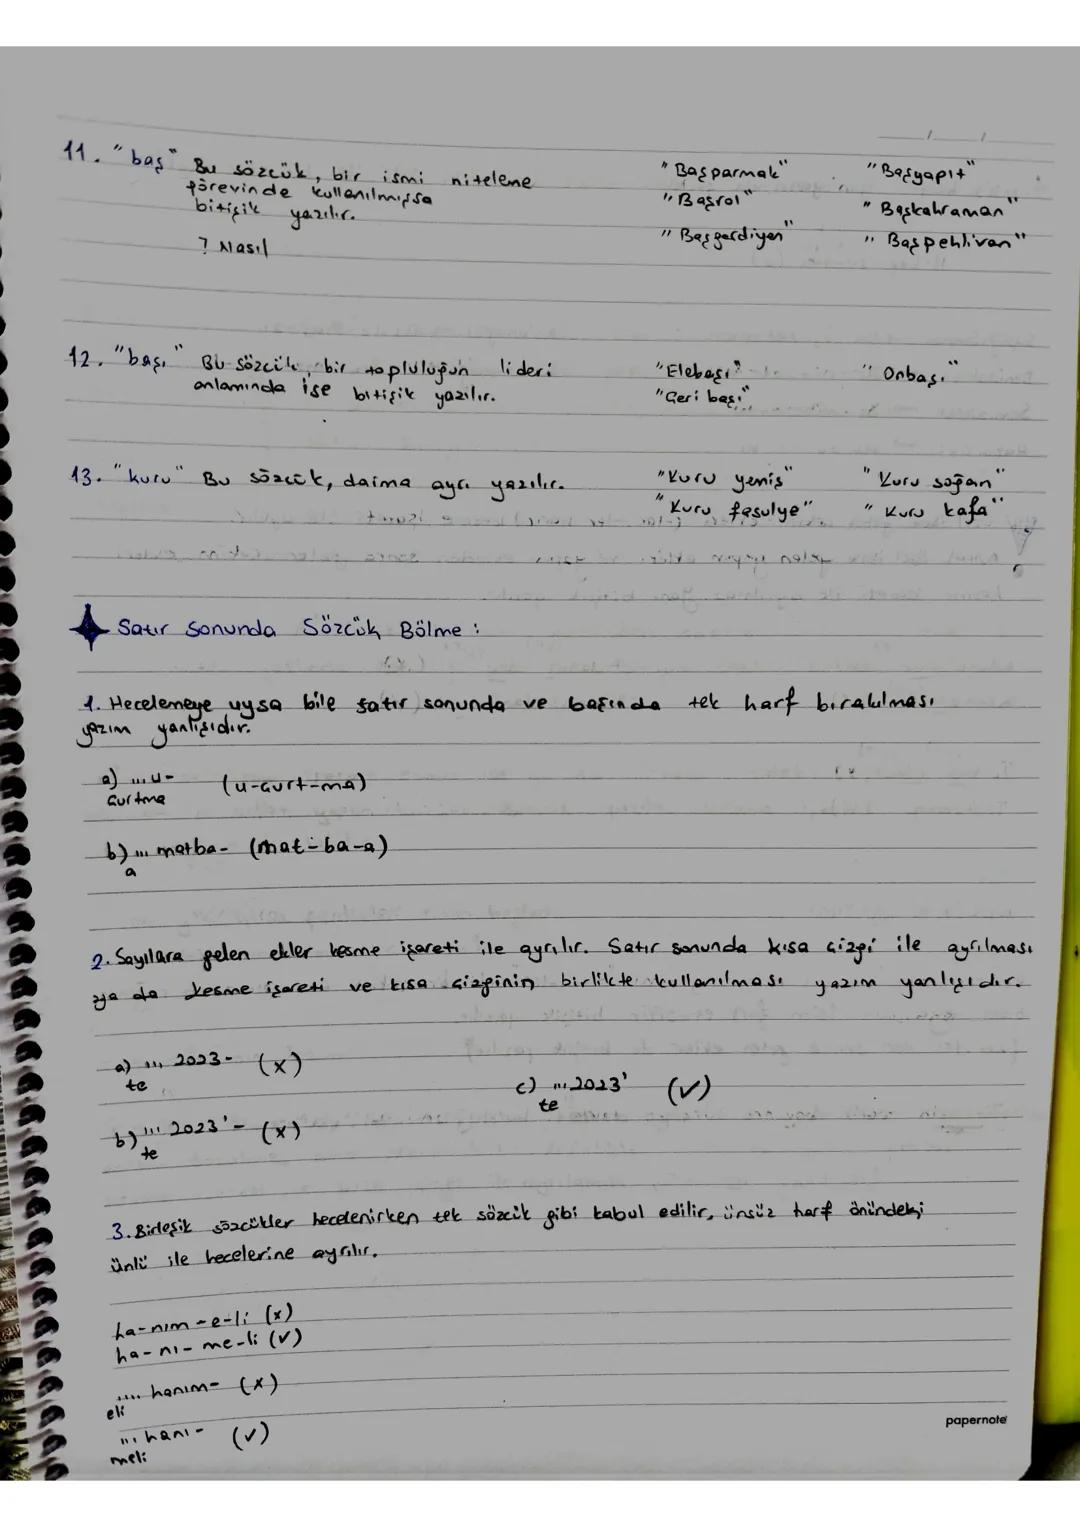 __/__/__
11. "baş" Bu sözcük, bir ismi niteleme
görevinde kullanılmışsa
bitişik yazılır.
? Nasıl
"Başparmak" "Başyapıt"
"Başrol" "Başkahraman"
"Başgardiyan" "Başpehlivan"
12. "başı" Bu sözcük, bir topluluğun lideri
anlamında ise bitişik yazılır.
"Elebaşı" "Onbaşı"
"Çeri başı"
13. "kuru" Bu sözcük, daima ayrı yazılır.
"Kuru yemiş" "Kuru soğan"
"Kuru fasulye" "Kuru kafa"
Satır Sonunda Sözcük Bölme :
1. Hecelemeye uysa bile satır sonunda ve başında tek harf bırakılması
yazım yanlışıdır.
a) ... u- (u-çurt-ma)
çurtma
b) ... matba- (mat-ba-a)
a
2. Sayılara gelen ekler kesme işareti ile ayrılır. Satır sonunda kısa çizgi ile ayrılması
ya da kesme işareti ve kısa çizginin birlikte kullanılması yazım yanlışıdır.
a) ... 2023- (x)
te
b) ... 2023'- (x)
te
c) ... 2023' (✓)
te
3. Birleşik sözcükler hecelenirken tek sözcük gibi kabul edilir, ünsüz harf önündeki
ünlü ile hecelerine ayrılır.
ha-nım-e-li (x)
ha-nı-me-li (✓)
.... hanım- (x)
eli
... hanı- (✓)
meli
papernote